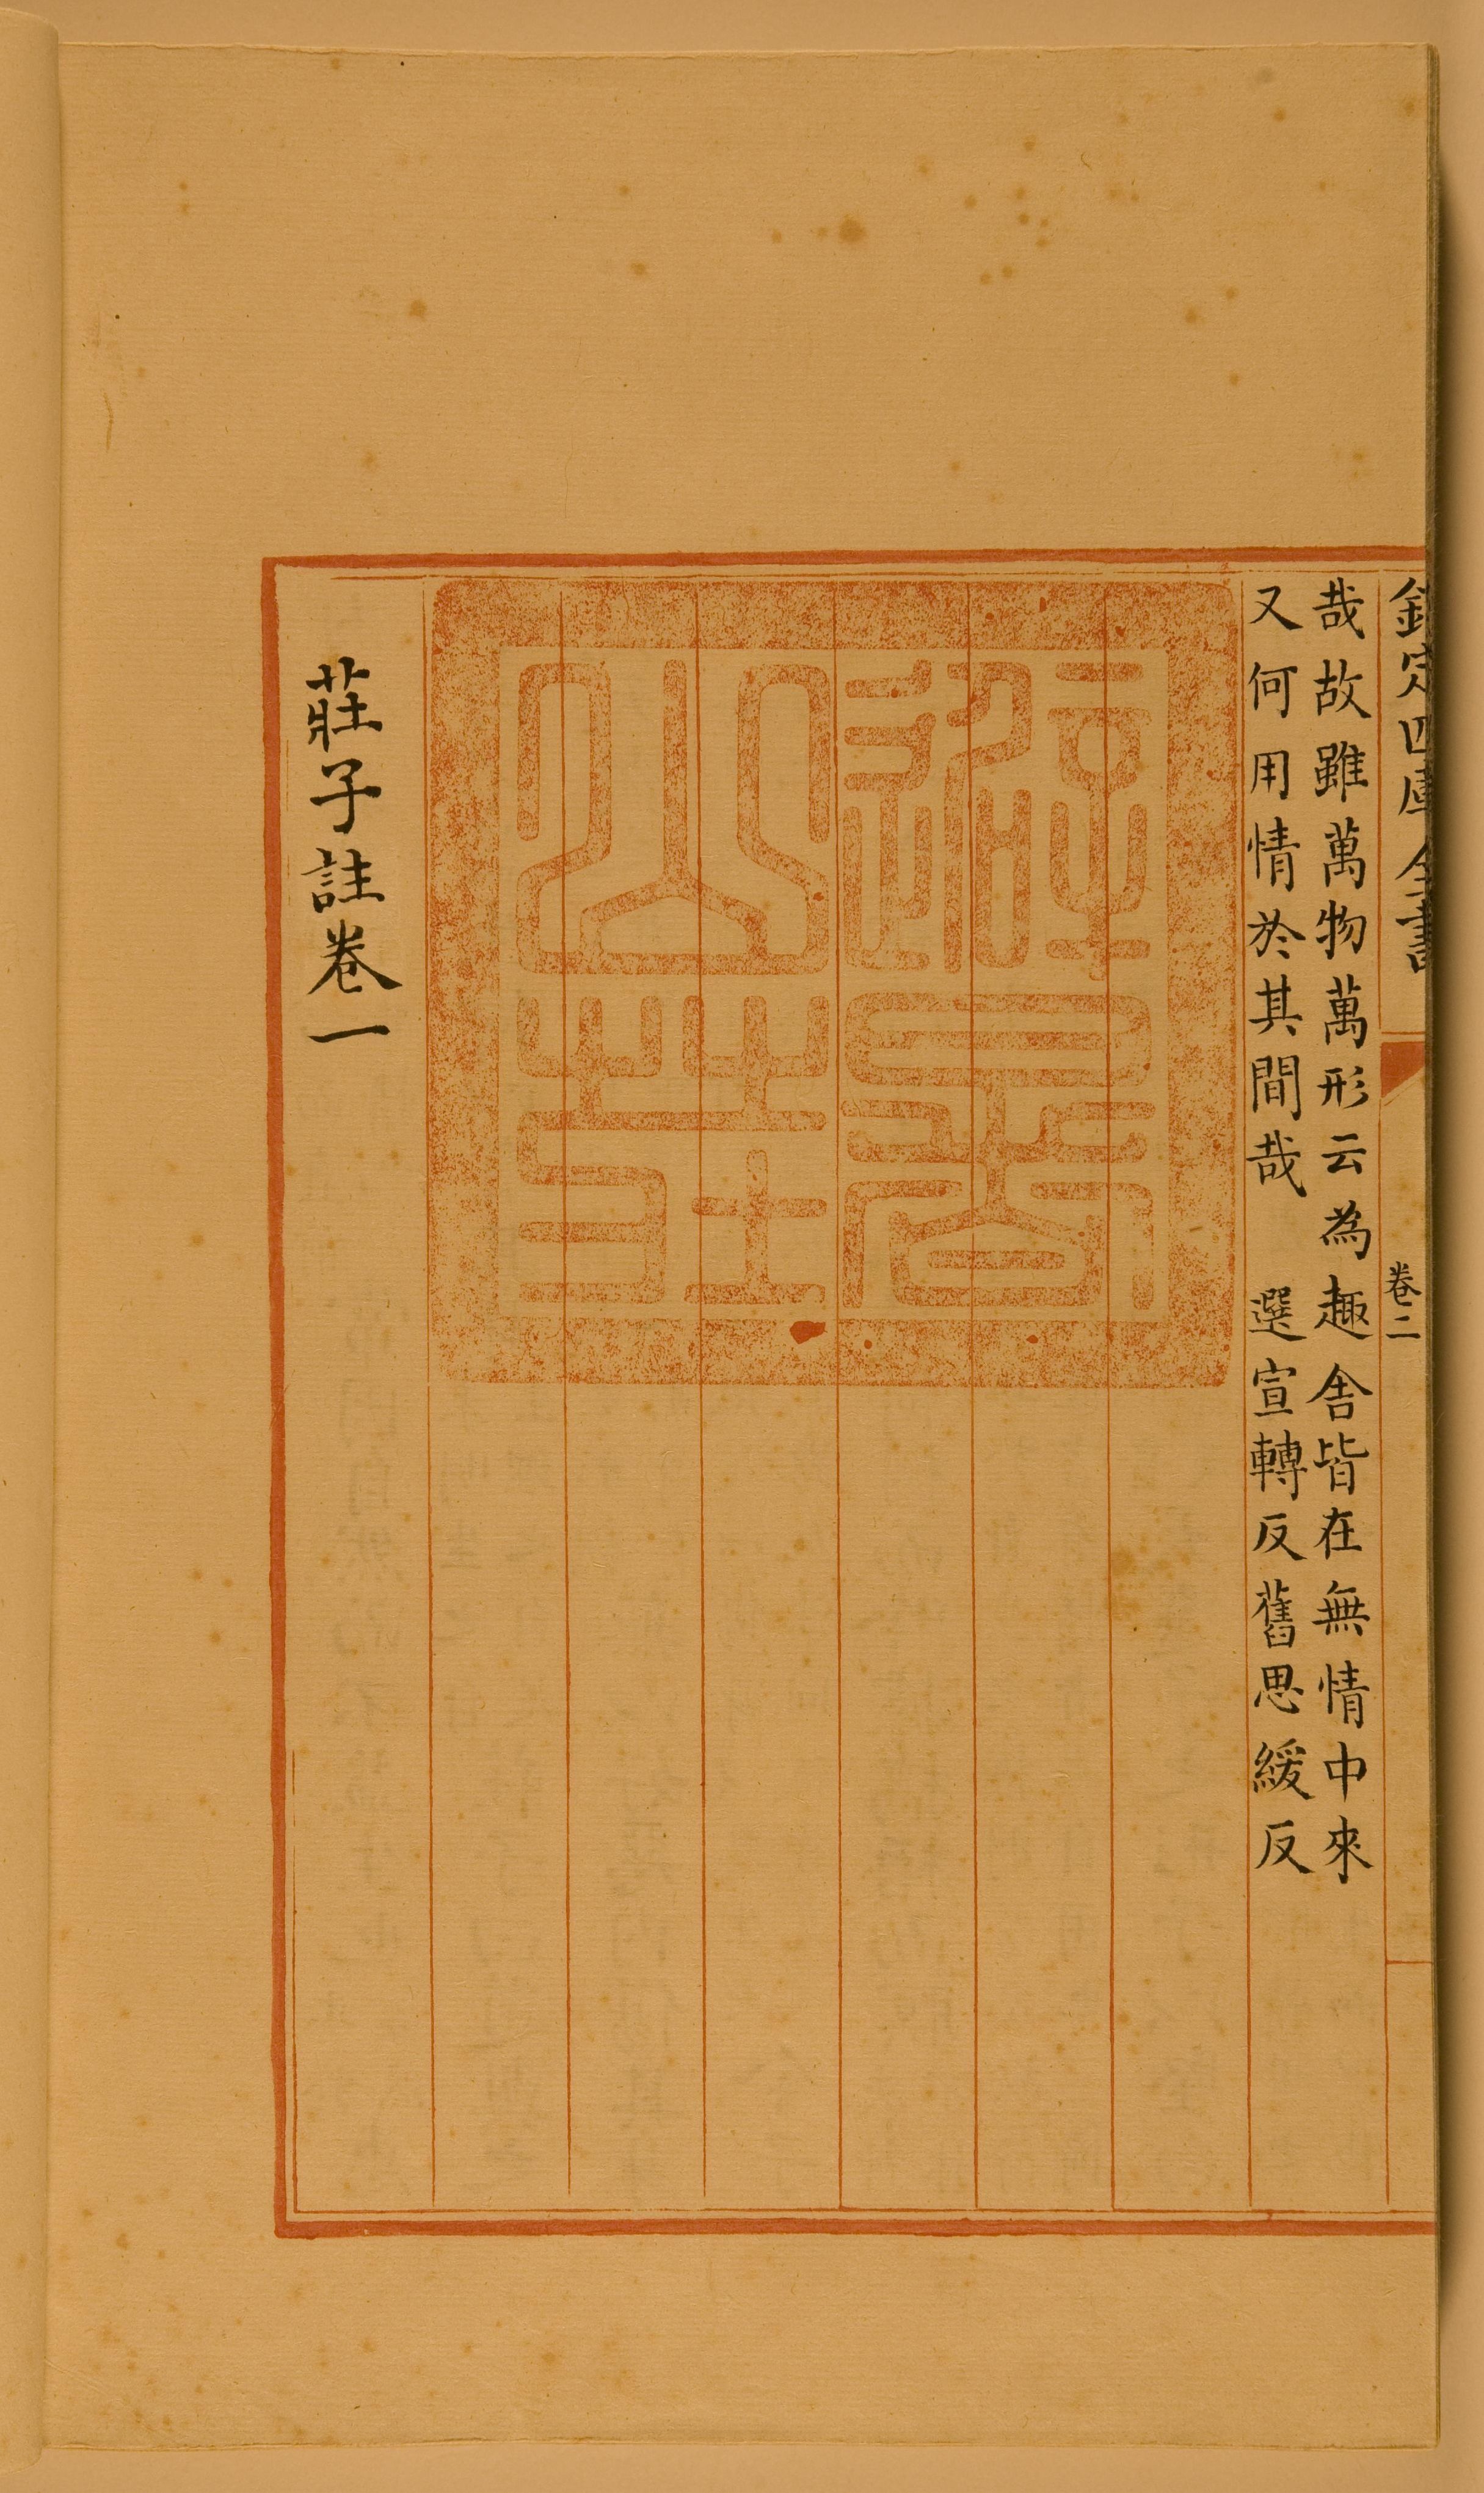 欽定四庫全書
卷二
哉故雖萬物萬形云為趣舍皆在無情中來
又何用情於其間哉　選宣轉反舊思緩反
避暑
山莊
莊子註卷一